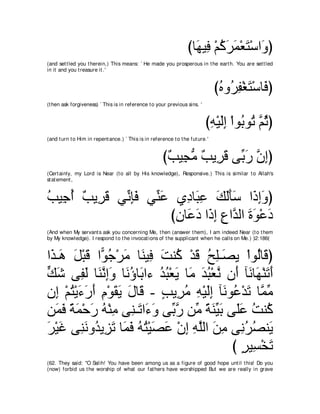 (وَاسْتَعْمَرَكُمْ فِيهَا)
(and settled you therein.) This means: ` He made you prosperous in the earth. You are settled
in it and you treasure it.'
(فَاسْتَغْفِرُوهُ)
(then ask forgiveness) ` This is in reference to your previous sins. '
(ثُمَّ تُوبُواْ إِلَيْهِ)
(and turn to Him in repentance.) ` This is in reference to the future.'
(إِنَّ رَبِّى قَرِيبٌ مُّجِيبٌ)
(Certainly, my Lord is Near (to all by His knowledge), Responsive.) This is similar to Allah's
statement,
(وَإِذَا سَأَلَكَ عِبَادِي عَنِّي فَإِنِّي قَرِيبٌ أُجِيبُ
دَعْوَةَ الدَّاعِ إِذَا دَعَانِ)
(And when My servants ask you concerning Me, then (answer them), I am indeed Near (to them
by My knowledge). I respond to the invocations of the supplicant when he calls on Me.) (2:186)
(قَالُواْ يصَـلِحُ قَدْ كُنتَ فِينَا مَرْجُوًّا قَبْلَ هَـذَا
أَتَنْهَانَآ أَن نَّعْبُدَ مَا يَعْبُدُ ءابَاؤُنَا وَإِنَّنَا لَفِى شَكٍّ
مِّمَّا تَدْعُونَآ إِلَيْهِ مُرِيبٍ - قَالَ يَقَوْمِ أَرَءَيْتُمْ إِن
كُنتُ عَلَى بَيِّنَةً مِّن رَّبِّى وَءَاتَـنِى مِنْهُ رَحْمَةً فَمَن
يَنصُرُنِى مِنَ اللَّهِ إِنْ عَصَيْتُهُ فَمَا تَزِيدُونَنِى غَيْرَ
تَخْسِيرٍ )
(62. They said: "O Salih! You have been among us as a figure of good hope until this! Do you
(now) forbid us the worship of what our fathers have worshipped But we are really in grave